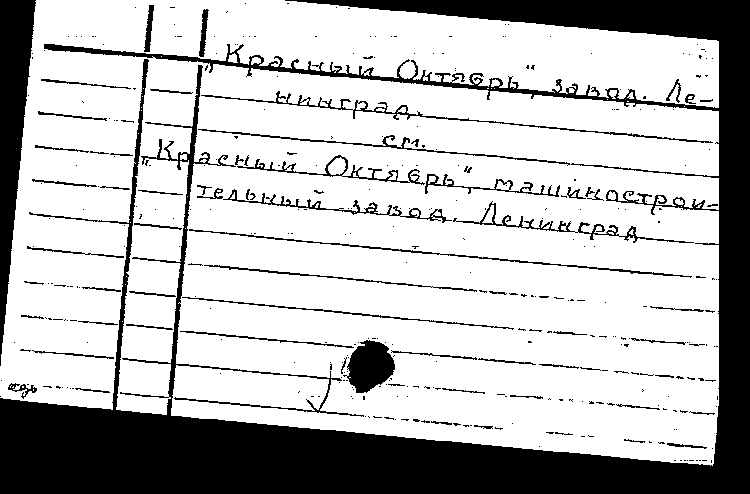 „Красный Октябрь", завод. Ле-
нинград.
см.
„Красный Октябрь", машинострои-
тельный завод. Ленинград